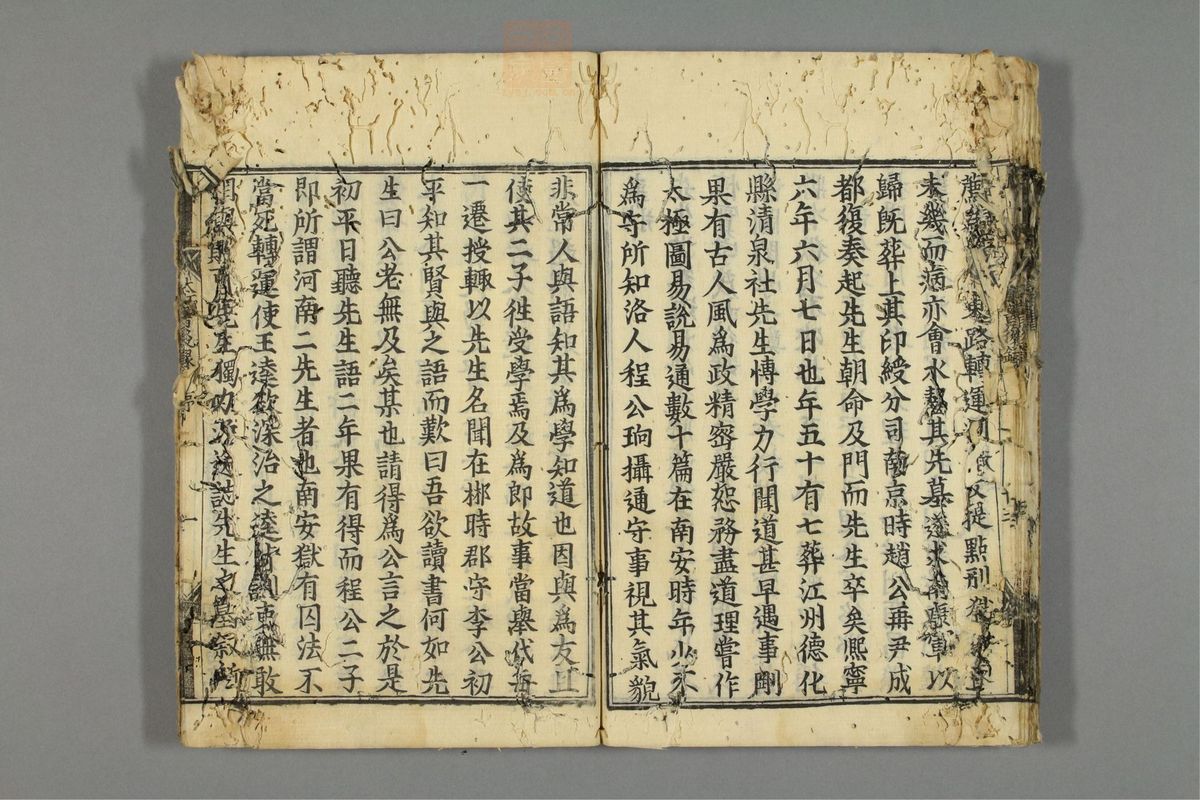 薦爲 東路轉運 又提點刑獄
未幾而病亦會水齧其先墓遂求南康軍以
歸旣葬上其印綬分司南京時趙公再尹成
都復奏起先生朝命及門而先生卒矣熙寧
六年六月七日也年五十有七葬江州德化
縣清泉社先生愽學力行聞道甚早遇事剛
果有古人風爲政精密嚴恕務盡道理嘗作
太極圖易說易通數十篇在南安時年少不
爲守所知洛人程公珦攝通守事視其氣貌
非常人與語知其爲學知道也因與爲友且
使其二子徃受學焉及爲郎故事當舉代每
一遷授輒以先生名聞在郴時郡守李公初
平知其賢與之語而歎曰吾欲讀書何如先
生曰公老無及矣某也請得爲公言之於是
初平日聽先生語二年果有得而程公二子
即所謂河南二先生者也南安獄有囚法不
當死轉運使王逵欲深治之逵 吏無敢
相與 先生獨力 誌先生之墓